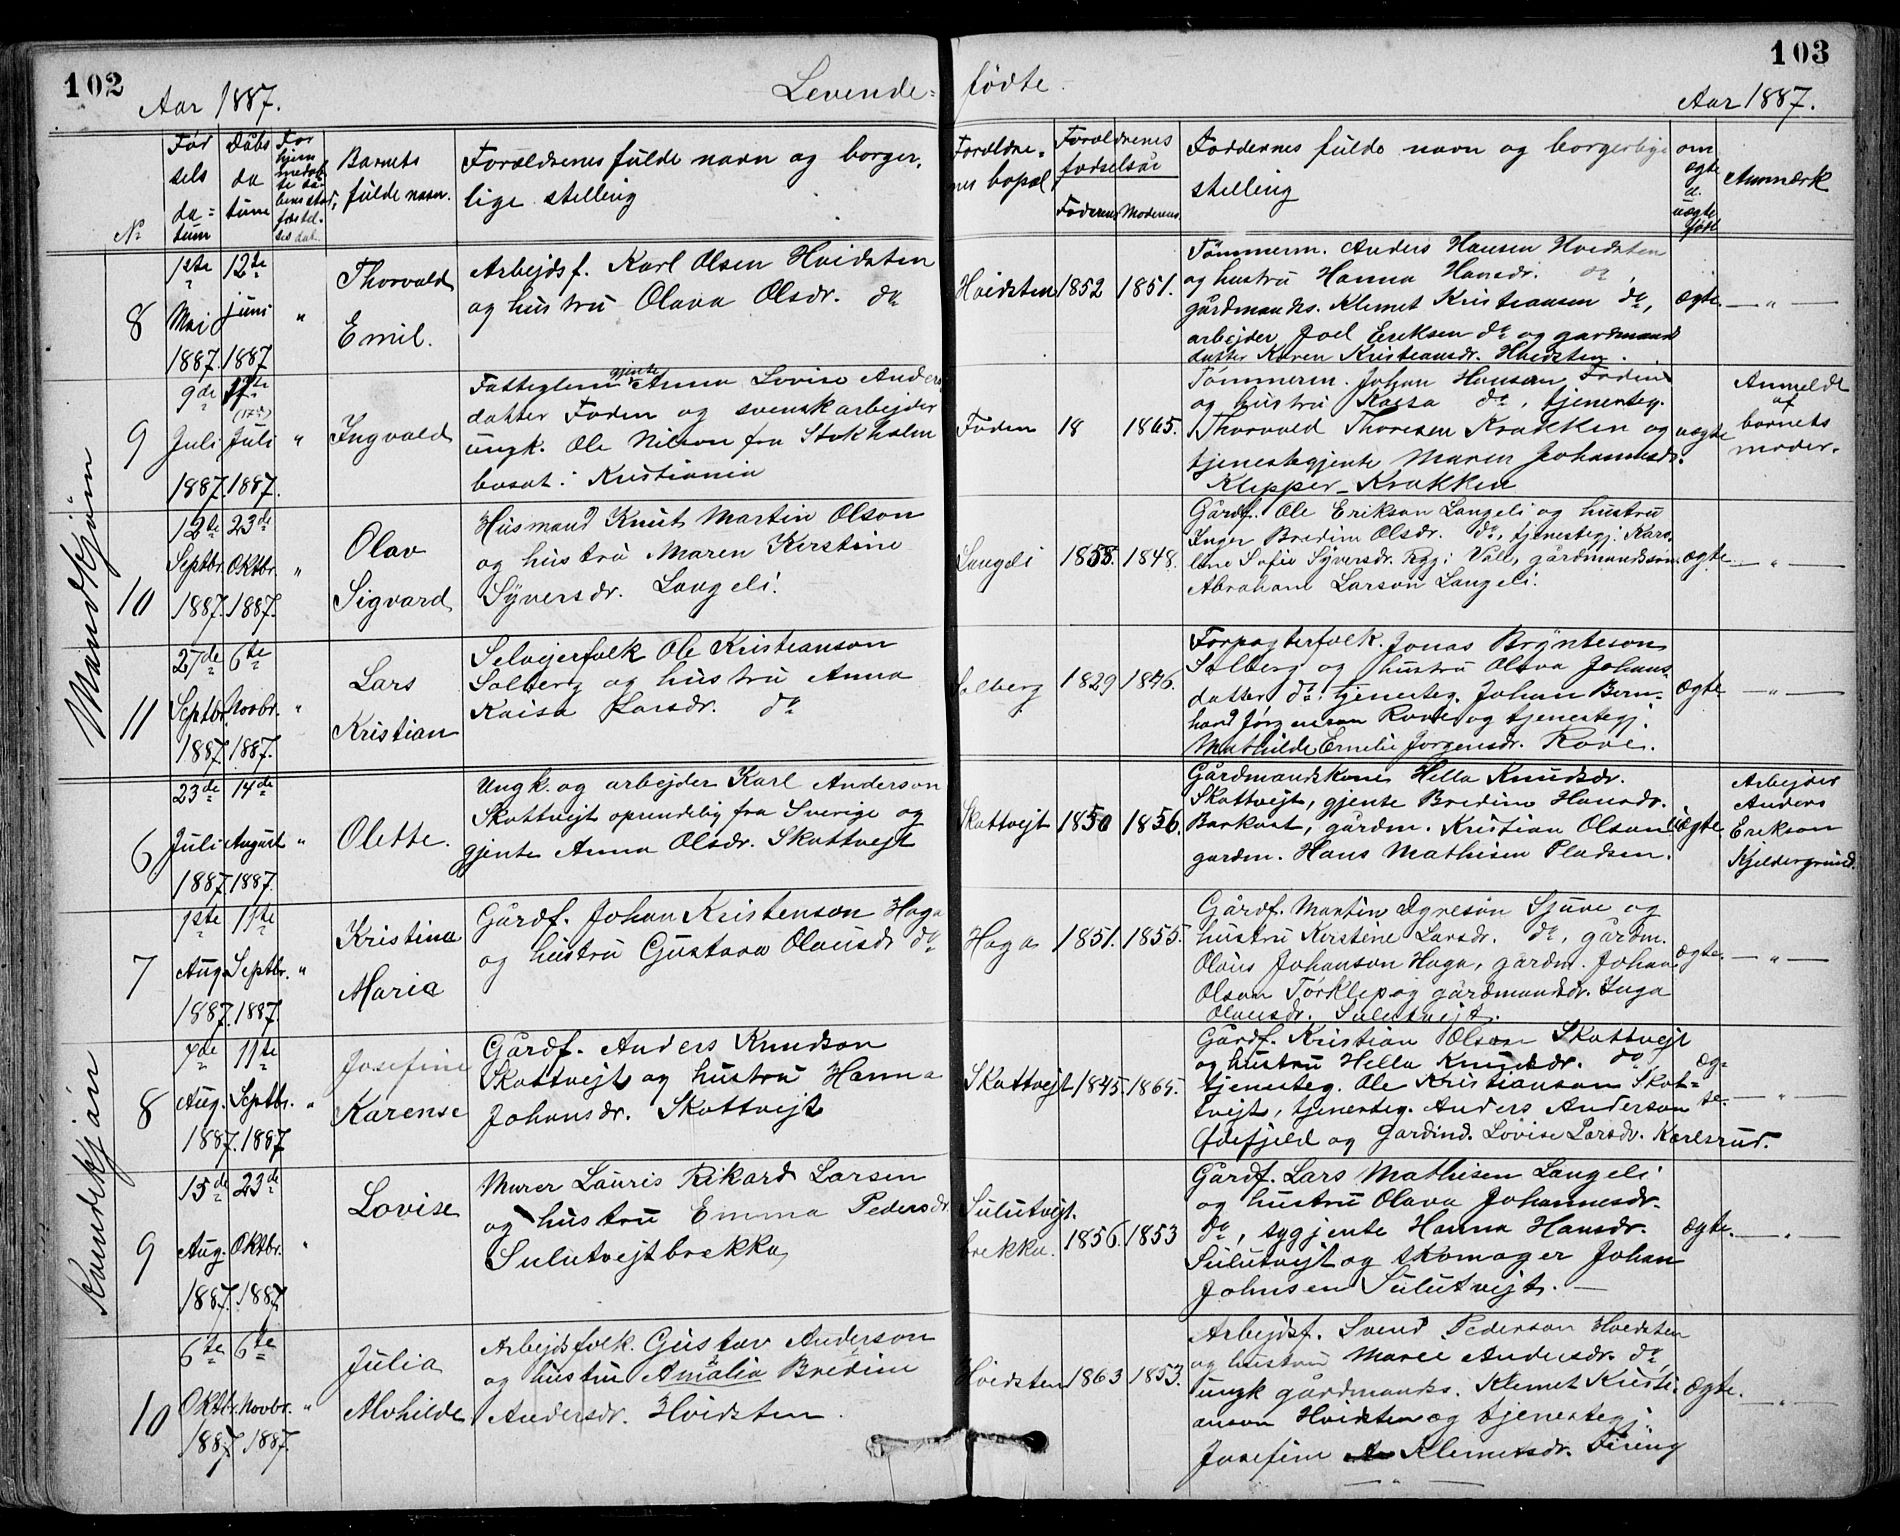 102
Aar 1887.
Levende-
Før
sels
da=
tum
Dåbs
da
tum
For
hjem
Barnets
fulde navn.
Forældrenes fulde navn og borger,
lige stilling
No
Mandkjøn
8
1ste
Mai
1887.
12te
juni
1887
"
Thorvald
Emil.
Arbejdsf. Karl Olsen Hvidsten
og hustru Olava Olsdr. do
9
9de
Juli
1887.
17te
(17de)
Juli
1887.
"
Ingvald
gjente
Fattiglem Anna Lovise Anders
datter Foden og svensk arbejder
ungk. Ole Nilson fra Stokholm
bosat i Kristiania
10
12te
Septbr.
1887.
23de
Oktbr.
1887.
"
Olav
Sigvard
Husmand Knut Martin Olson
og hustru Maren Kirstine
Syversdr. Langeli.
11
27de
Septbr.
1887.
6te
Novbr.
1887.
"
Lars
Kristian
Selvejerfolk Ole Kristianson
Solberg og hustru Anna
Kaisa Larsdr. do
Kvindekjøn
6
23de
Juli
1887.
14de
August
1887.
"
Olette.
Ungk. og arbejder Karl Anderson
Skottvejt oprindelig fra Sverige og
gjente Anna Olsdr. Skottvejt
7
1ste
Aug.
1887.
11te
Septbr.
1887.
"
Kristina
Maria
Gårdf. Johan Kristenson Haga
og hustru Gustava Olausdr do
8
7de
Aug.
1887.
11te
Septbr.
1887
"
Josefine
Karense
Gårdf. Anders Knudson
Skottvejt og hustru Hanna
Johansdr. Skottvejt
9
15de
Aug.
1887.
23de
Oktbr.
1887.
"
Lovise
Murer Lauris Rikard Larsen
og hustru Emma Pedersdr.
Sulutvejtbrekka,
10
6te
Oktbr.
1887.
6te
Novbr.
1887.
"
Julia
Alvhilde
Arbejdsfolk. Gustav Anderson
og hustru Amalia Bredine
Andersdr. Hvidsten.
103
fødte.
Aar 1887.
Forældre=
nes bopæl
Forældrenes
fødselsår
Faderens
Moderens
Faddernes fulde navn og borgerlige
stilling
om
ægte
el.
uægte
født
Anmærk
Hvidsten
1852
1851.
Tømmerm. Anders Hansen Hvidsten
og hustru Hanna Hansdr. do,
gårdmands. Klemet Kristiansen do,
arbejder Joel Eriksen do og gårdmands
datter Karen Kristiansdr. Hvidsten.
ægte.
— " —
Foden
18
1865.
Tømmerm. Johan Hansen Foden
og hustru Kaisa do, tjenesteg.
Thorvald Thoresen Krakken og
tjenestegjente Maren Johannesdr.
Klepper-Krakken
uægte
Anmeldt
af
barnets
moder.
Langeli
1858.
1848.
Gårdf. Ole Erikson Langeli og hustru
Inger Bredine Olsdr. do, tjenestegj. Karo
line Sofie Syversdr. Rygj: Vall, gårdmandsson
Abraham Larson Langeli.
ægte
— " —
Solberg
1829
1846.
Forpagterfolk. Jonas Brynteson
Solberg og hustru Olava Johans
datter do. tjenesteg. Johan Bern=
hard Jørgenson Rove og tjenestegj.
Mathilde Emelie Jørgensdr. Rove.
ægte
— " —
Skottvejt
1850
1856.
Gårdmandskone Hella Knudsdr.
Skottvejt, gjente Bredine Hansdr.
Barkost, gårdm. Kristian Olson
gardm. Hans Mathisen Pladsen.
uægte
Arbejder
Anders
Erikson
Kjeldergrind.
Haga
1851.
1855.
Gårdf. Martin Igreson Sjuve og
hustru Kirstine Larsdr. do, gårdm.
Olaus Johanson Haga, gårdm. Johan
Olson Tørklep og gårdmandsdr. Inga
Olausdr. Sulutvejt.
ægte.
— " —
Skottvejt
1845.
1865.
Gårdf. Kristian Olson Skottvejt
og hustru Hella Knudsdr. do,
tjenesteg. Ole Kristianson Skot=
tvejt, tjenesteg. Anders Anderson
Ødefjeld og Gardind. Lovise Larsdr. Karlsrud.
æg-
te.
— " —
Sulutvejt.
brekka.
1856.
1853
Gårdf. Lars Mathisen Langeli
og hustru Olava Johannesdr.
do, sygjente Hanna Hansdr.
Sulutvejt og skomager Johan
Johnsen Sulutvejt. —
ægte.
— " —
Hvidsten
1863
1853.
Arbejdsf. Svend Pederson Hvidsten
og hustru Maree Andersdr. do,
ungk gårdmands. Klemet Kristi-
anson Hvidsten og tjenestegj.
Josefine Klemetsdr. Tveing
ægte.
— " —